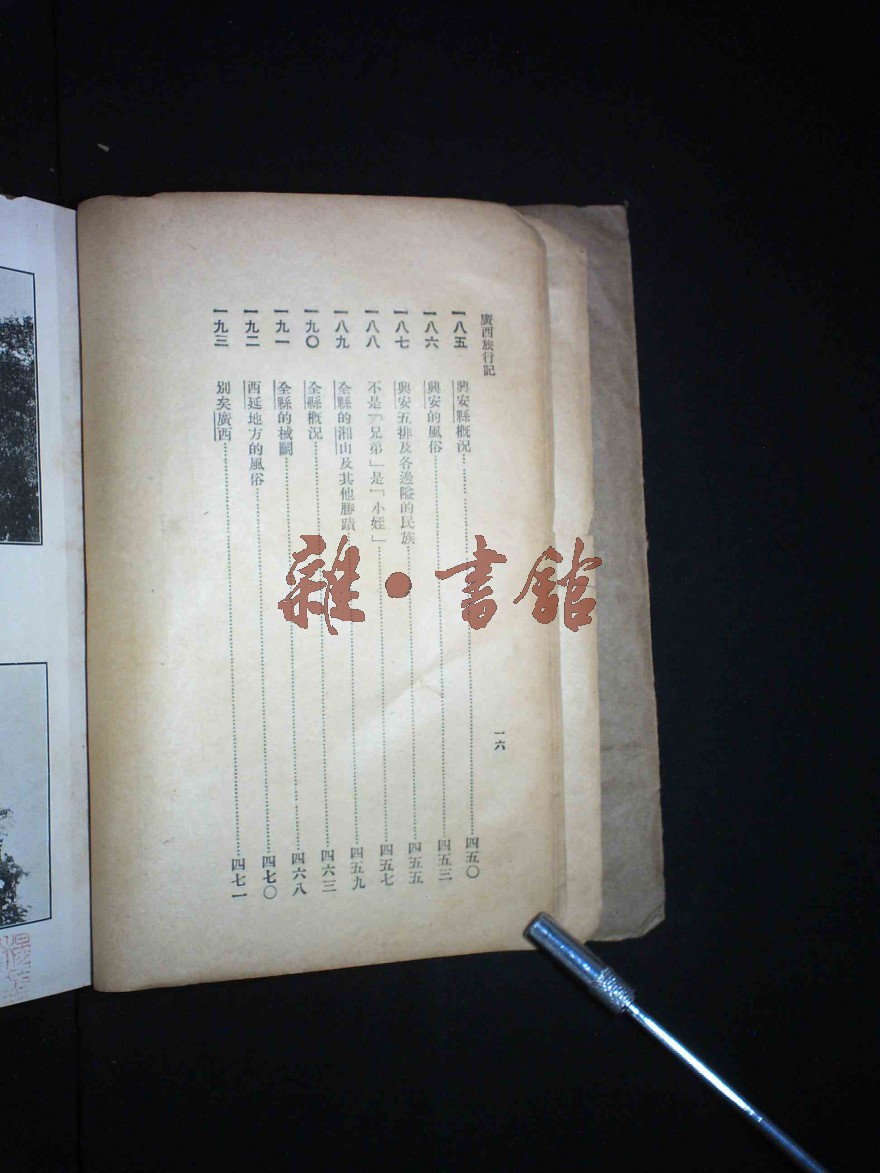 廣西旅行記
一八五 興安縣概況 四五〇
一八六 興安的風俗 四五三
一八七 興安五排及各邊隘的民族 四五五
一八八 不是「兄弟」是「小姪」 四五七
一八九 全縣的湘山及其他勝蹟 四五九
一九〇 全縣概況 四六三
一九一 全縣的械鬭 四六八
一九二 西延地方的風俗 四七〇
一九三 別矣廣西 四七一
一六
雜·書館